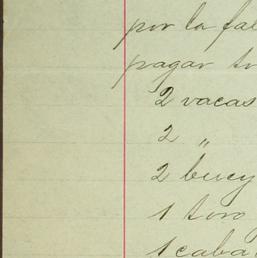 por la fal
pagar
2 vacas
2 "
2 buey
1 toro
1 caba